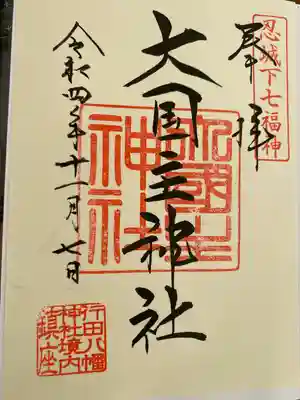 忍城下七福神
奉拝
大国主神社
大國主神社
令和四年十一月七日
行田八幡
神社境内
鎮座